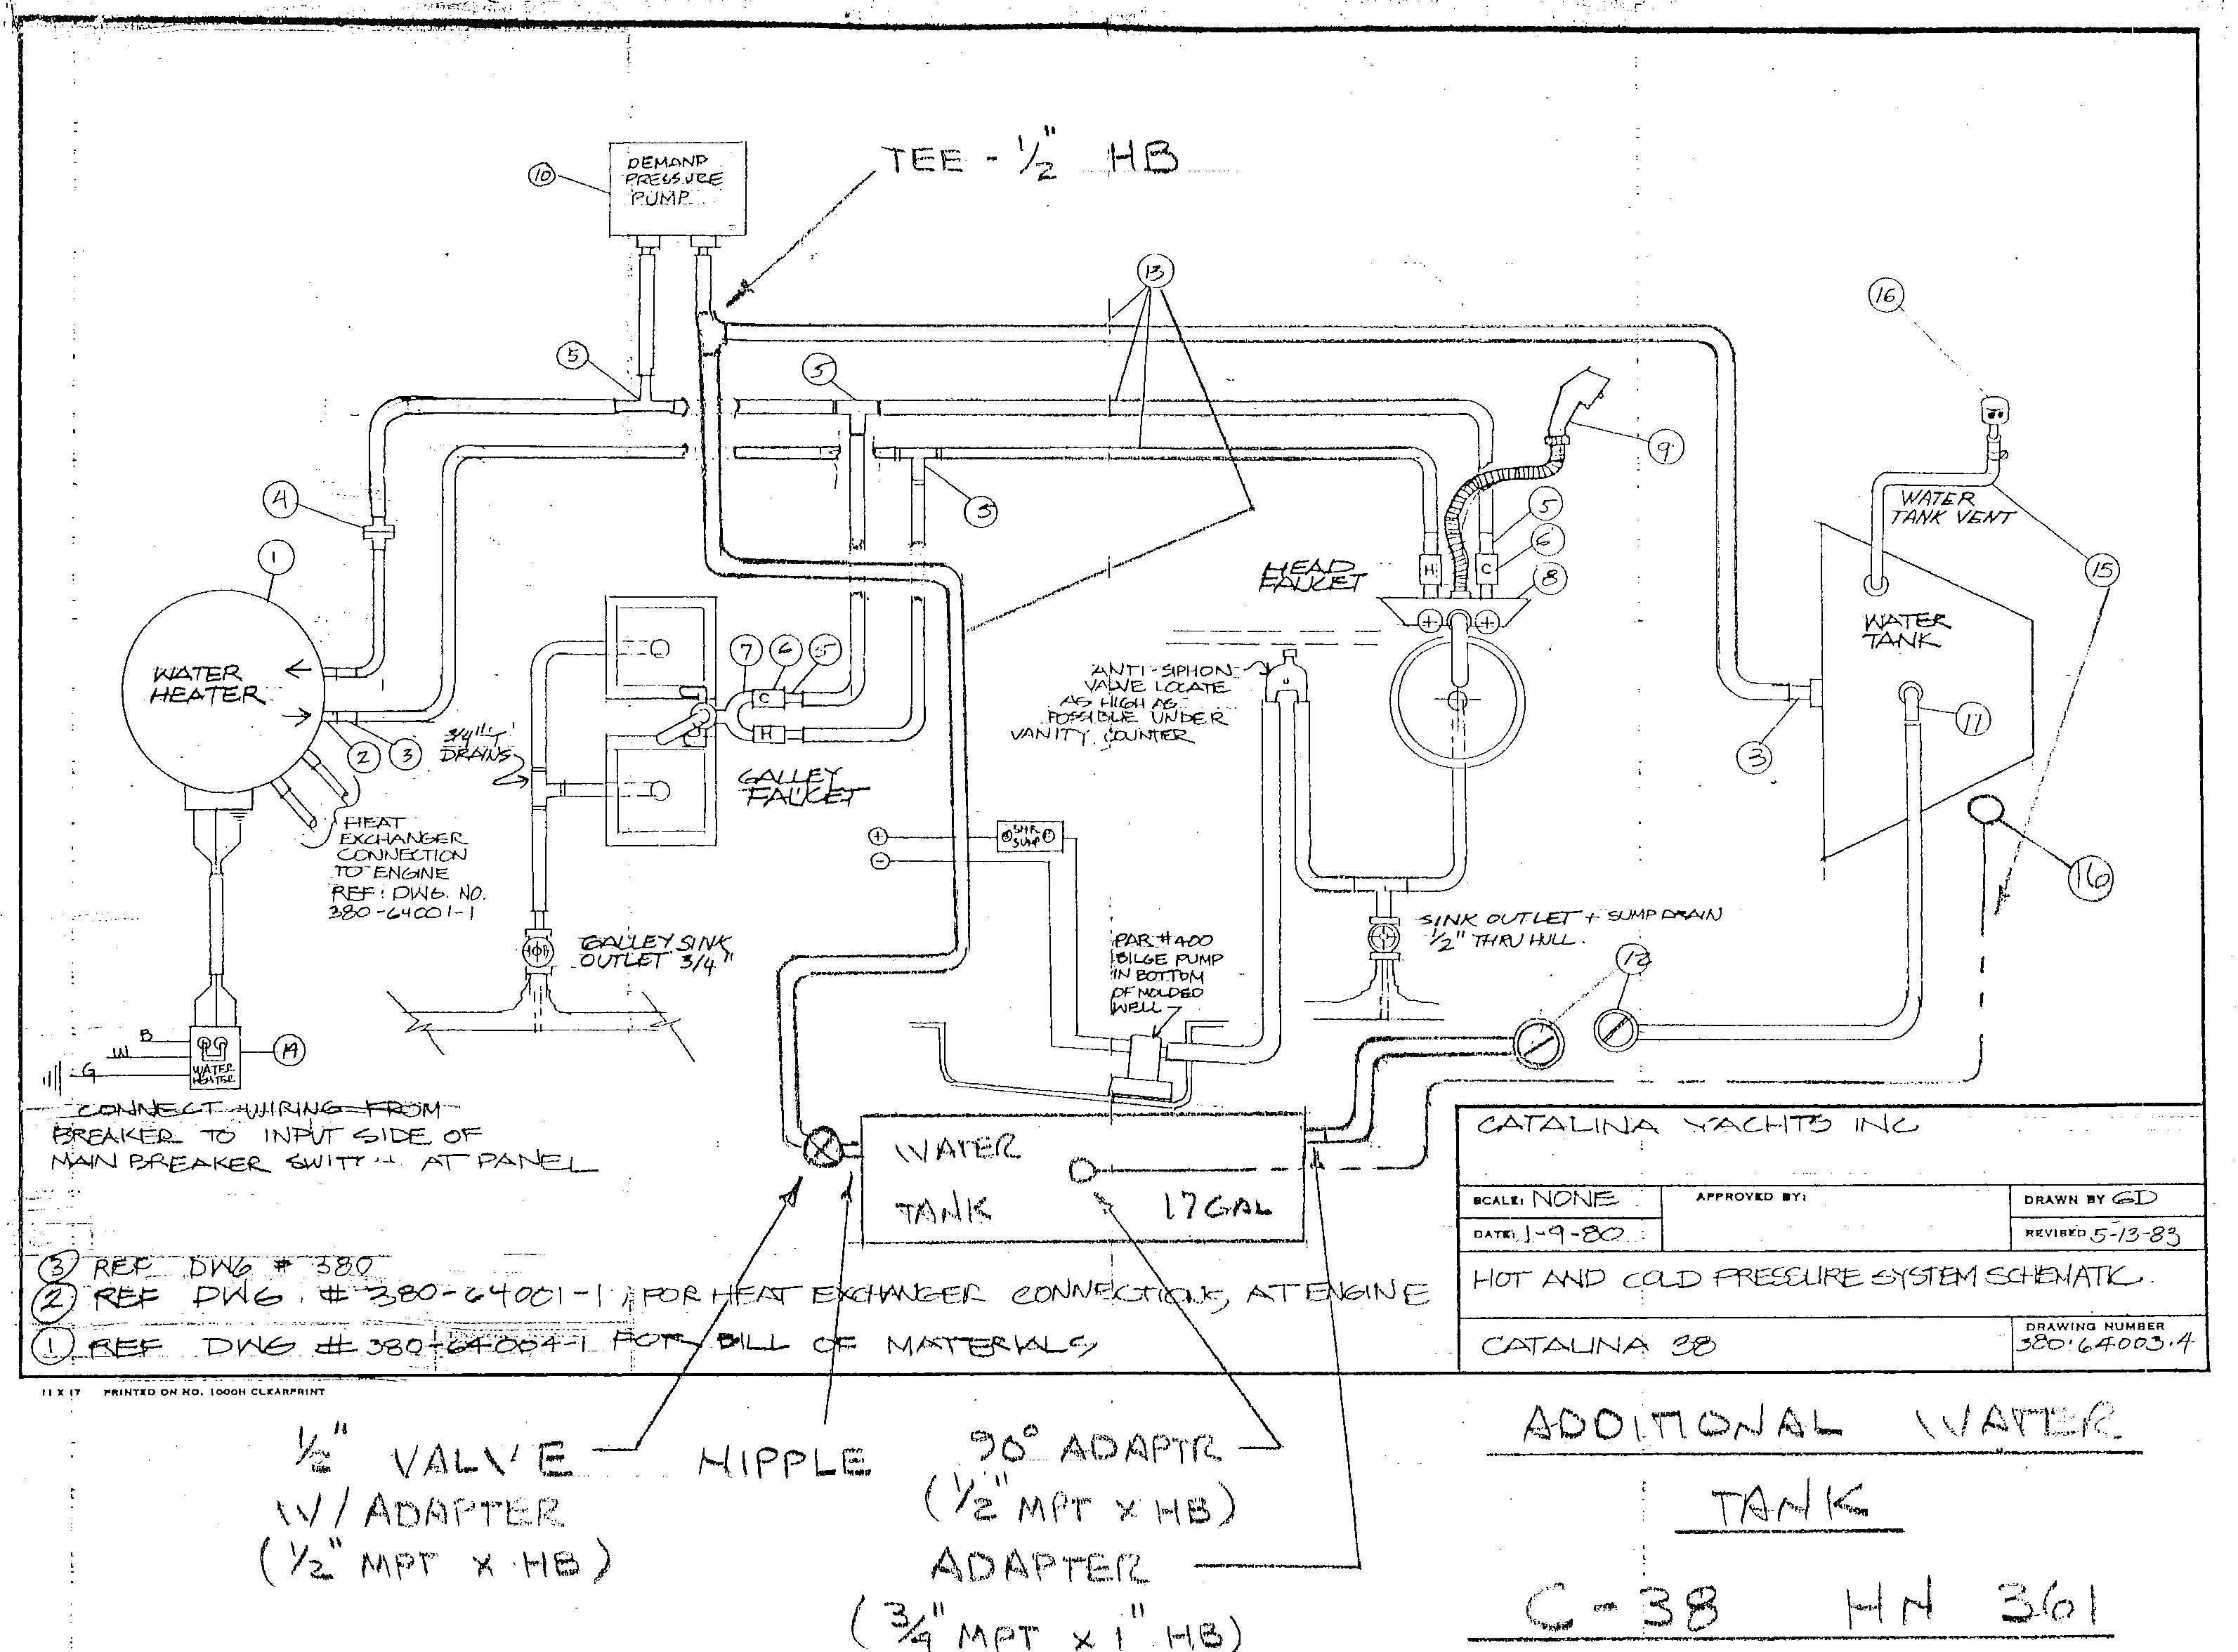 TEE - 1/2" HB
10
DEMAND
PRESSURE
PUMP
13
16
5
5
9
4
3
5
6
8
WATER
TANK VENT
15
1
HEAD
FAUCET
H
C
WATER
HEATER
7
6
5
C
H
ANTI-SIPHON
VALVE LOCATE
AS HIGH AS
POSSIBLE UNDER
VANITY COUNTER
WATER
TANK
11
3
2
3
3/4" 'T'
DRAINS
GALLEY
FAUCET
HEAT
EXCHANGER
CONNECTION
TO ENGINE
REF: DWG. NO.
380-64001-1
+
-
SHR
SUMP
16
GALLEY SINK
OUTLET 3/4"
PAR #400
BILGE PUMP
IN BOTTOM
OF MOLDED
WELL
SINK OUTLET + SUMP DRAIN
1/2" THRU HULL.
12
B
W
G
WATER
HEATER
14
CONNECT WIRING FROM
BREAKER TO INPUT SIDE OF
MAIN BREAKER AT PANEL
WATER
TANK 17 GAL
3 REF DWG # 380
2 REF DWG. # 380-64001-1, FOR HEAT EXCHANGER CONNECTIONS, AT ENGINE
1 REF DWG # 380-64004-1 FOR BILL OF MATERIALS
CATALINA YACHTS INC
SCALE: NONE
APPROVED BY:
DRAWN BY GD
DATE: 1-9-80
REVISED 5-13-83
HOT AND COLD PRESSURE SYSTEM SCHEMATIC.
CATALINA 38
DRAWING NUMBER
380-64003-4
11 X 17 PRINTED ON NO. 1000H CLEARPRINT
1/2" VALVE
W/ ADAPTER
(1/2" MPT X HB)
NIPPLE
90° ADAPTR
(1/2" MPT X HB)
ADAPTER
(3/4" MPT X 1" HB)
ADDITIONAL WATER
TANK
C-38 HN 361